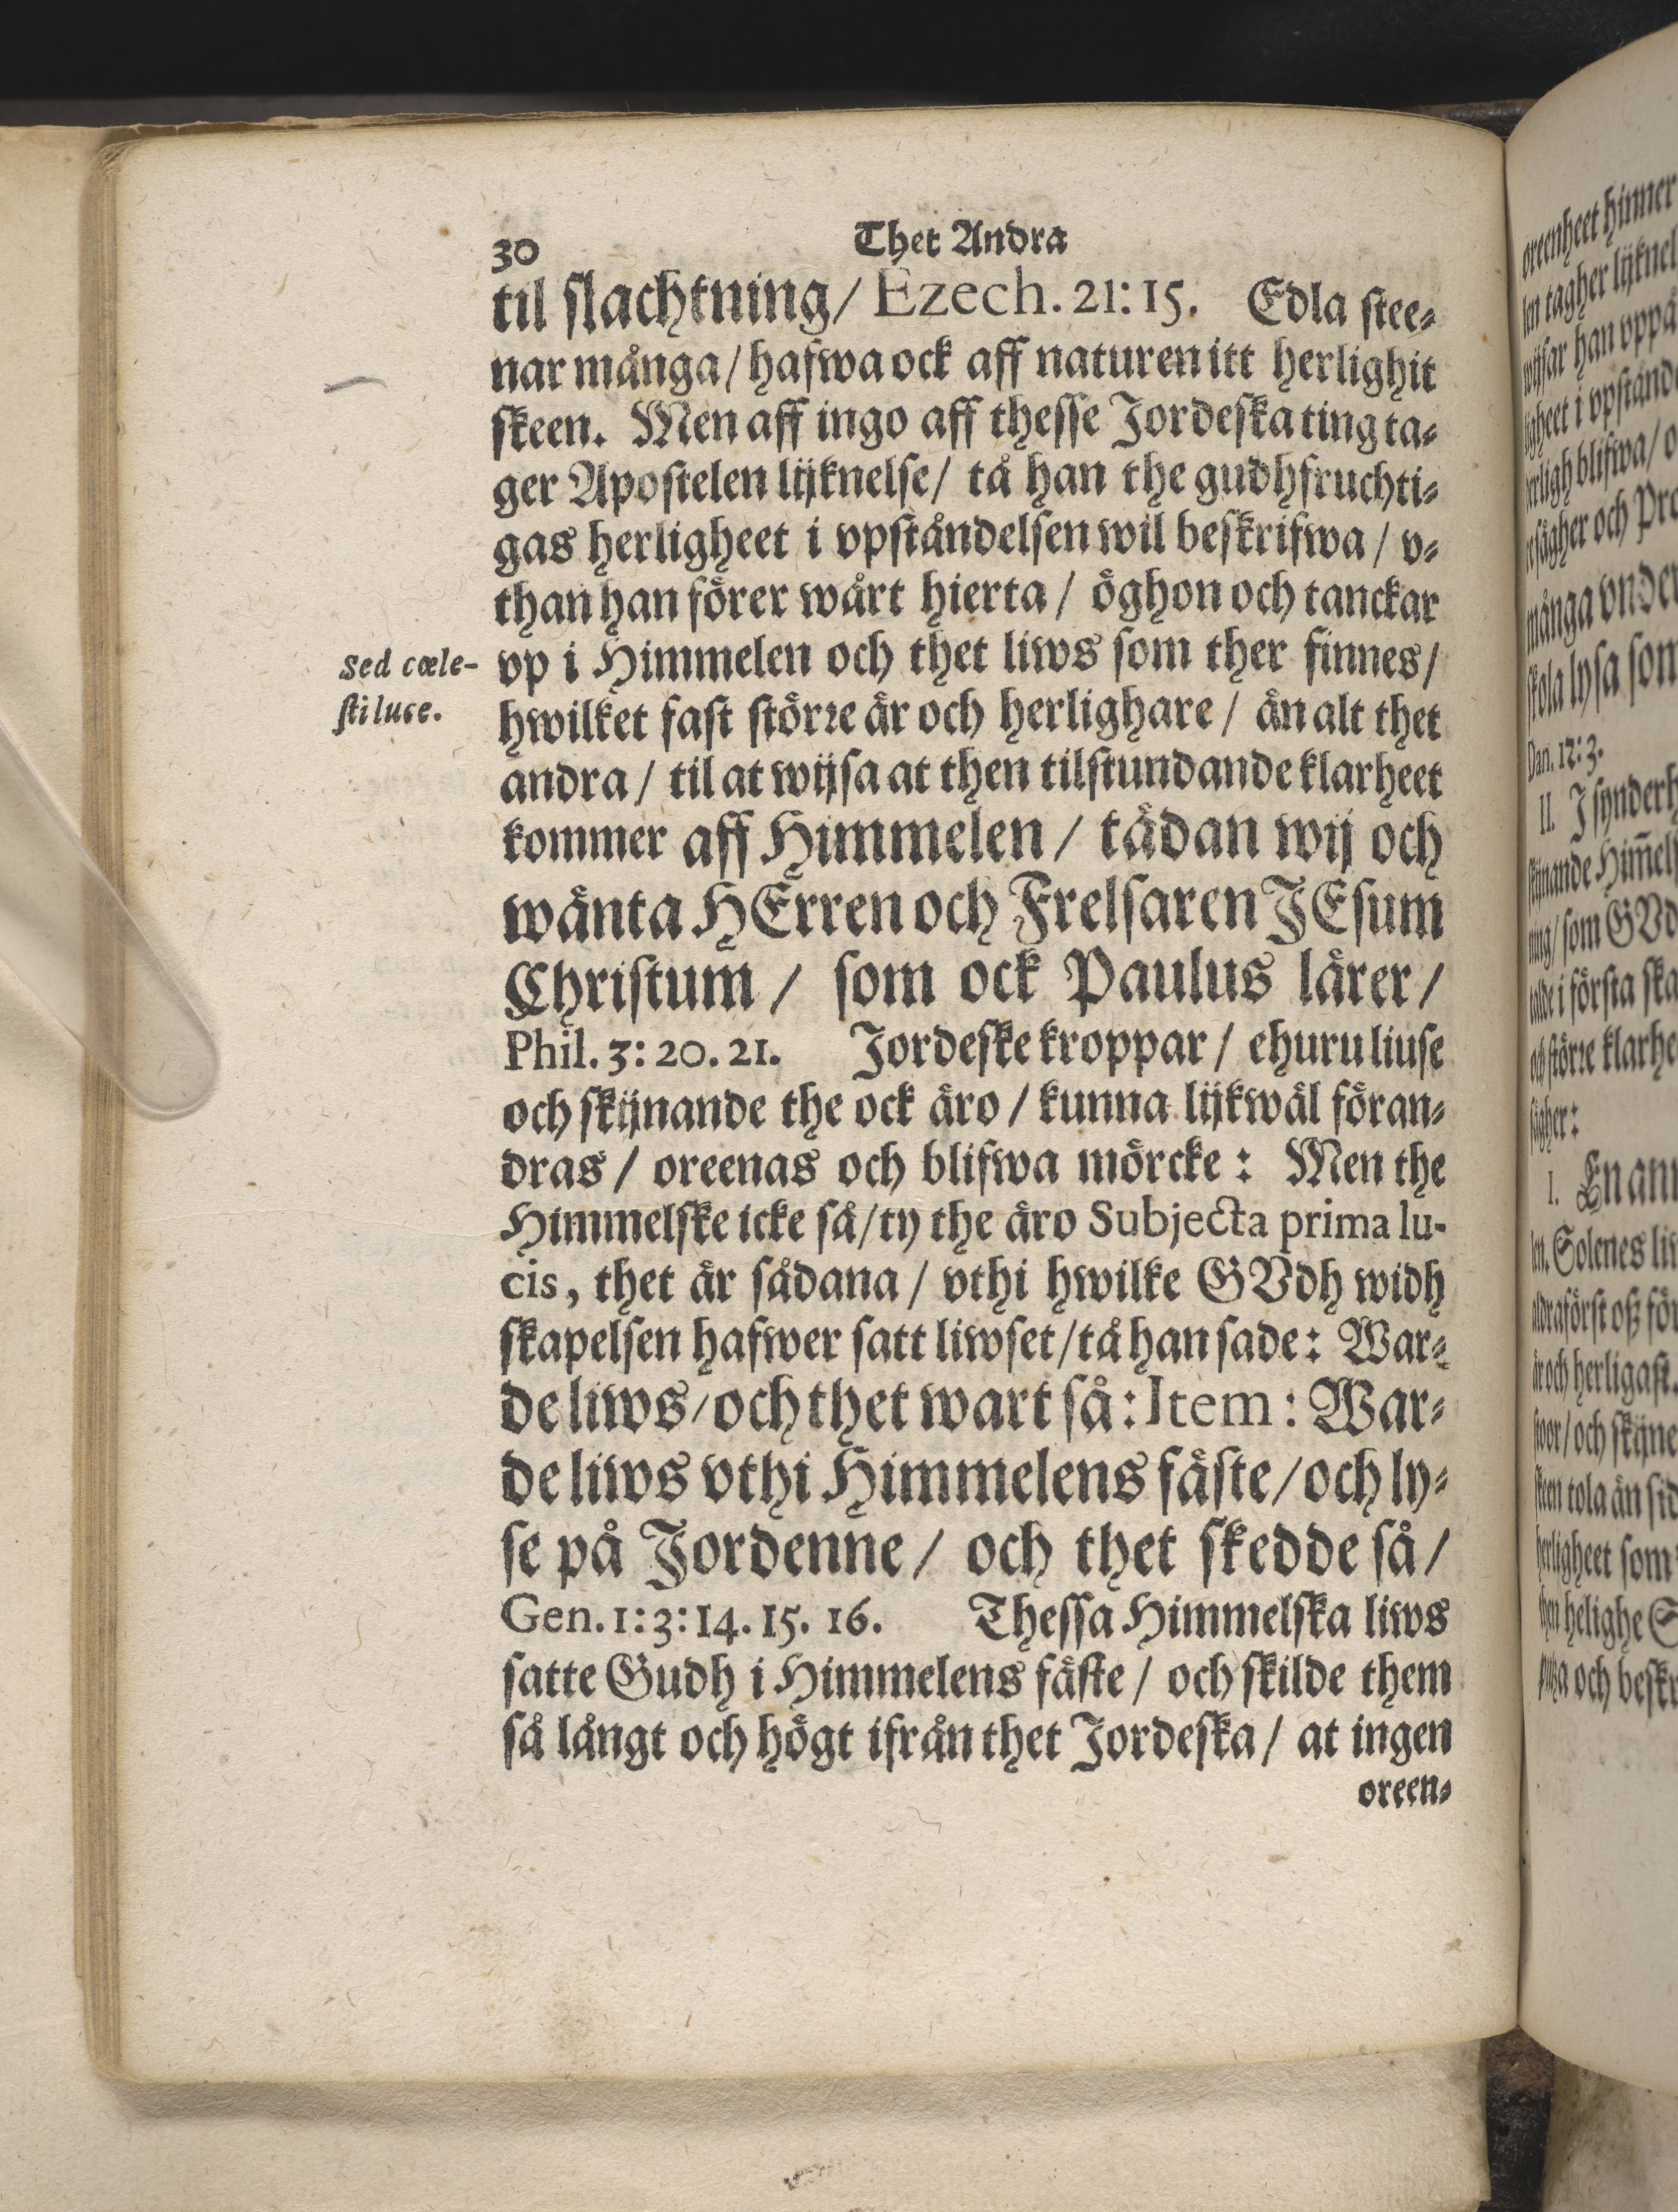 30 Thet Andra
til slachtning/ Ezech. 21: 15. Edla stee⸗
nar många/ hafwa ock aff naturen itt herlighit
skeen. Men aff ingo aff thesse Jordeska ting ta⸗
ger Apostelen lijknelse/ tå han the gudhfruchti⸗
gas herligheet i vpståndelsen wil beskrifwa/ v⸗
than han förer wårt hierta/ öghon och tanckar
vp i Himmelen och thet liws som ther finnes/
hwilket fast större är och herlighare/ än alt thet
andra/ til at wijsa at then tilstundande klarheet
kommer aff Himmelen/ tädan wij och
wänta HErren och Frelsaren JEsum
Christum/ som ock Paulus lärer/
Phil. 3: 20. 21. Jordeske kroppar/ ehuru liuse
och skijnande the ock äro/ kunna lijkwäl föran⸗
dras/ oreenas och blifwa mörcke: Men the
Himmelske icke så/ ty the äro Subjecta prima lu-
cis, thet är sådana/ vthi hwilke GVdh widh
skapelsen hafwer satt liwset/ tå han sade: War⸗
de liws/ och thet wart så: Item: War⸗
de liws vthi Himmelens fäste/ och ly⸗
se på Jordenne/ och thet skedde så/
Gen. 1: 3: 14. 15. 16. Thessa Himmelska liws
satte Gudh i Himmelens fäste/ och skilde them
så långt och högt ifrån thet Jordeska/ at ingen
oreen⸗
Sed cœle-
sti luce.
oreenheet hinner
len tagher lijknel
wijsar han vppå
ligheet i vpstånd
herligh blifwa/ o
sägher och Pro
många vnder
skola lysa som
Dan. 12: 3.
II. J synderh
skijnande Him̃els
ning/ som GVd
talde i första ska
och större klarhe
sägher:
1. En ann
len. Solenes liw
aldraförst oß för
är och herligast.
stoor/ och skijne
steen tola än sid
herligheet som
then helighe S
och beskr